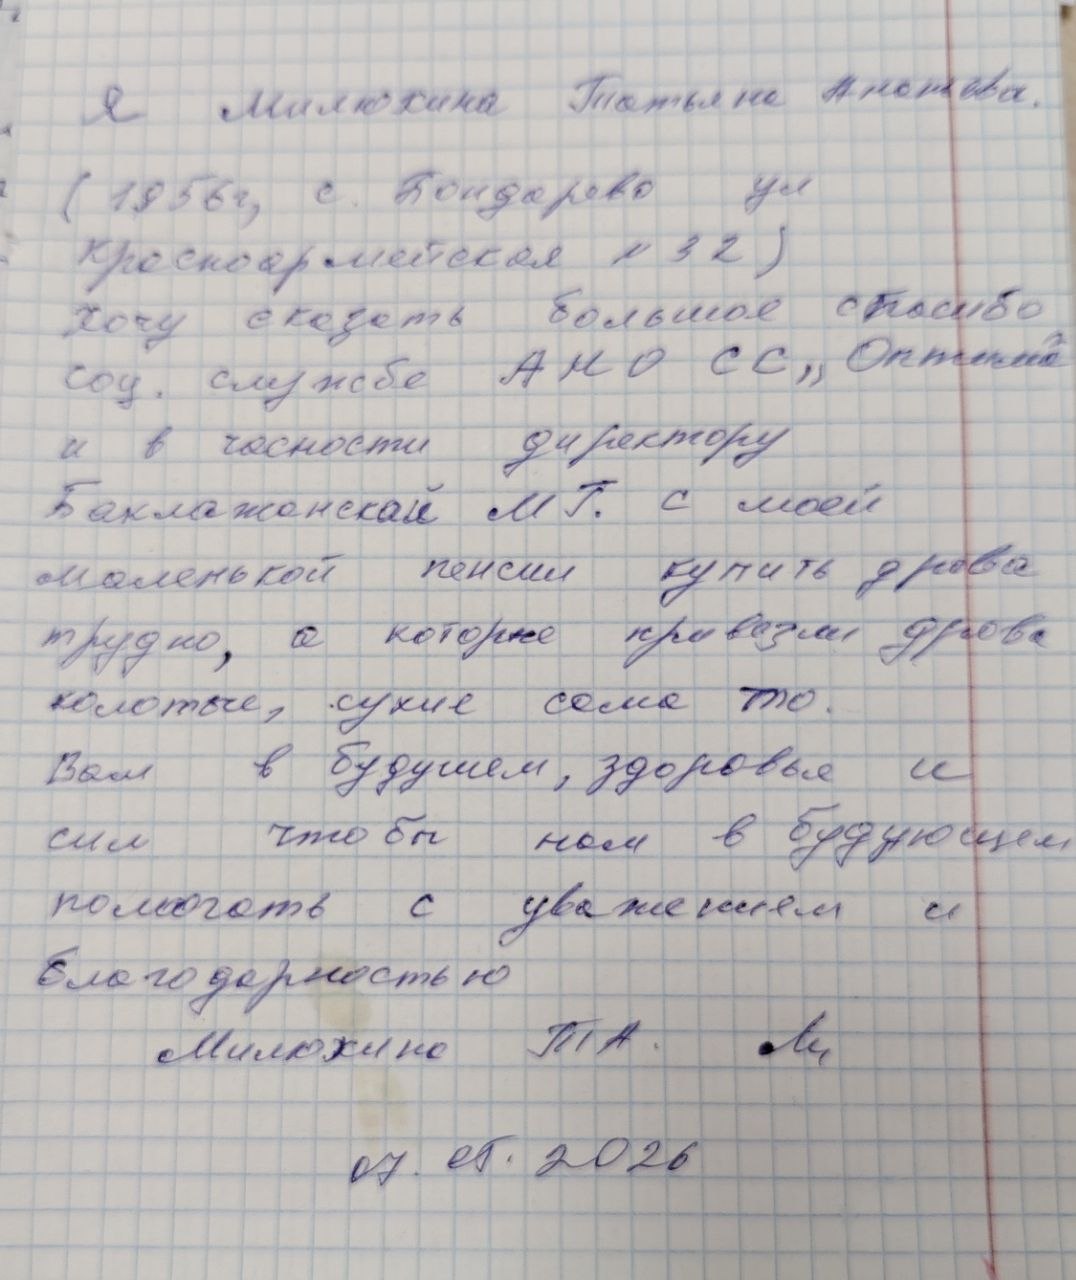 Я Милюхина Татьяна
(1956г, с. Бондарево ул
Красноармейская № 32)
Хочу сказать большое спасибо
соц. службе АНО СС „Оптима
и в часности директору
Баклажанскай М Г. с моей
маленькой пенсии купить дрова
трудно, а которые привезли дрова
колотые, сухие само то.
Вам в будушем, здоровья и
сил чтобы нам в будующем
помогать с уважением и
благодарностью
Милюхина Т А.
07. 2026